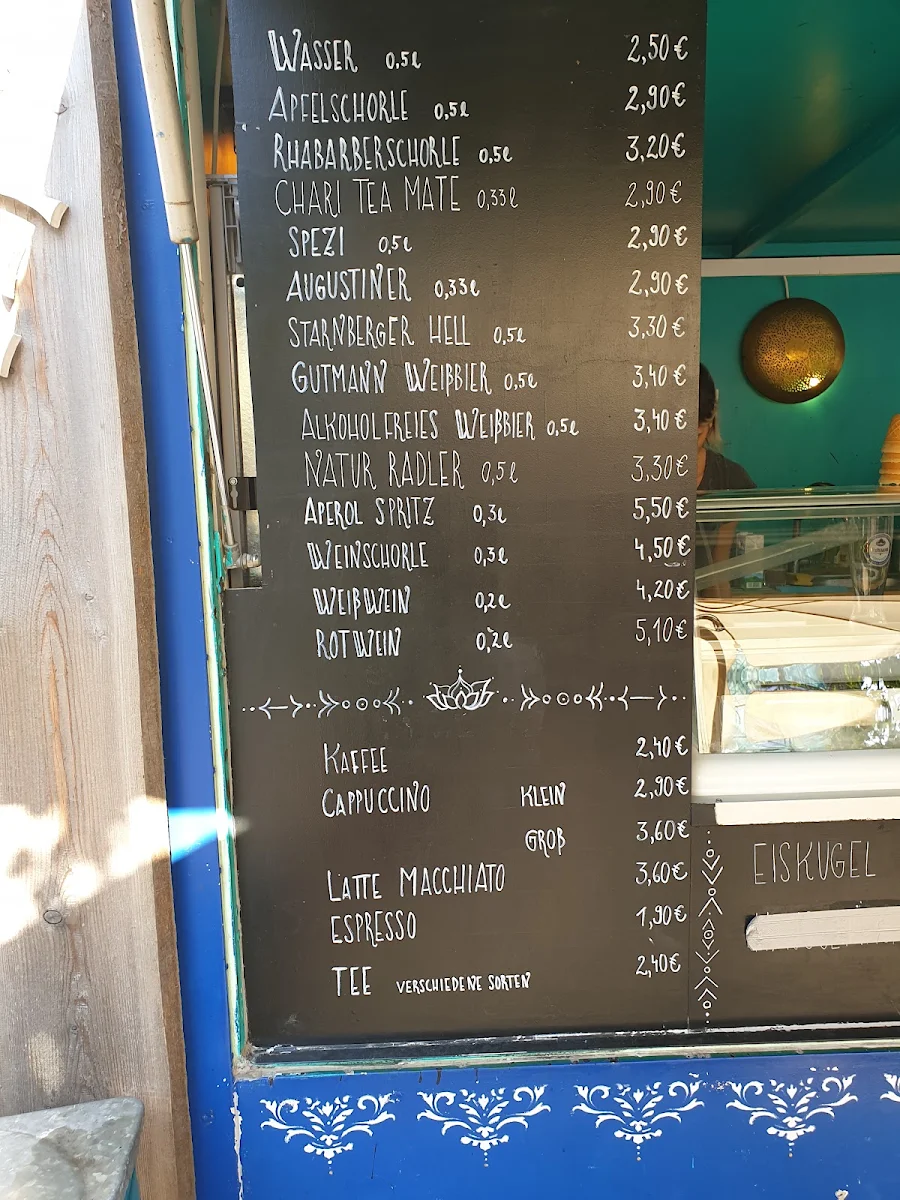 WASSER 0,5l 2,50€
APFELSCHORLE 0,5l 2,90€
RHABARBERSCHORLE 0,5l 3,20€
CHARI TEA MATE 0,33l 2,90€
SPEZI 0,5l 2,90€
AUGUSTINER 0,33l 2,90€
STARNBERGER HELL 0,5l 3,30€
GUTMANN WEIßBIER 0,5l 3,40€
ALKOHOLFREIES WEIßBIER 0,5l 3,40€
NATUR RADLER 0,5l 3,30€
APEROL SPRITZ 0,3l 5,50€
WEINSCHORLE 0,3l 4,50€
WEIßWEIN 0,2l 4,20€
ROTWEIN 0,2l 5,10€
KAFFEE 2,40€
CAPPUCCINO KLEIN 2,90€
GROß 3,60€
LATTE MACCHIATO 3,60€
ESPRESSO 1,90€
TEE VERSCHIEDENE SORTEN 2,40€
EISKUGEL